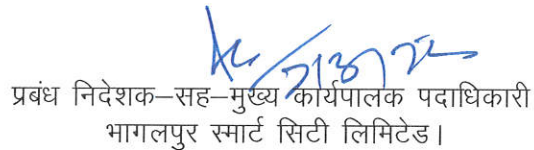 प्रबंध निदेशक–सह–मुख्य कार्यपालक पदाधिकारी
भागलपुर स्मार्ट सिटी लिमिटेड।